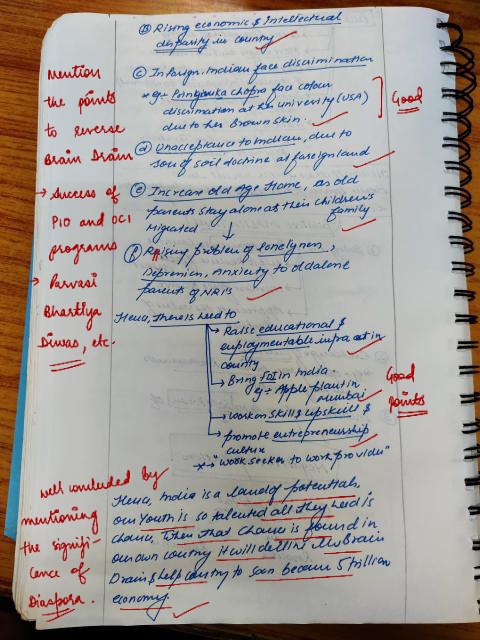 (B) Rising economic & Intellectual
disparity in country
(C) In Foreign, Indian face discrimination
* eg:- Priyanka chopra face colour
discrimination at her university (USA)
due to her Brown skin.
(d) Unacceptance to Indian, due to
son of soil doctrine at foreign land
(e) Increase old Age Home, as old
parents stay alone as their children's
family
Migrated
(f) Raising problem of lonelyness,
Depression, Anxiety to old alone
parents of NRIs
Hence, there is need to
→ Raise educational &
employmentable infra at in
country
→ Bring FDI in India.
eg:- Apple plant in
Mumbai
→ work on skill & upskill &
→ promote entrepreneurship
culture
*→ "work seeker to work provider"
Hence, India is a land of potentials,
our Youth is so talented all they need is
chance, when that chance is found in
our own country it will decline the Brain
Drain & help country to soon become 5 trillion
economy.
mention
the points
to reverse
Brain Drain
→ Success of
PIO and OCI
programs
→ Parvasi
Bhartiya
Diwas, etc.
Good
Good
points
well concluded by
mentioning
the signifi-
cance of
Diaspora.